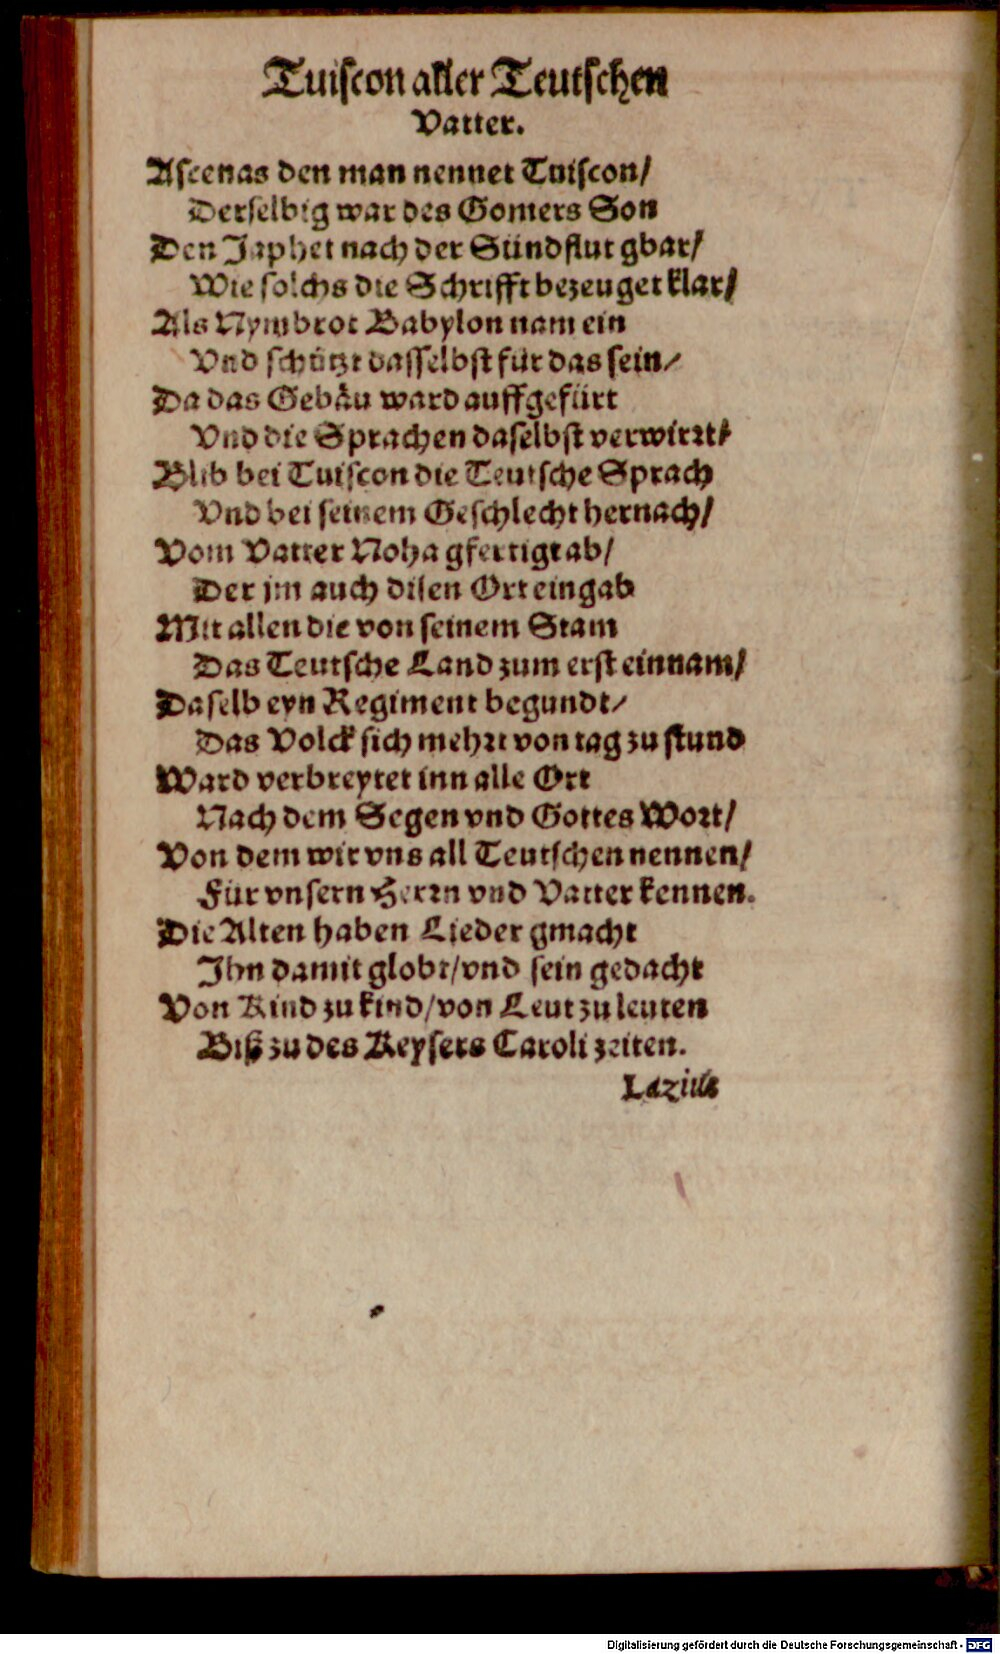 Tuiscon aller Teutschen
Vatter.
Ascenas den man nennet Tuiscon/
Derselbig war des Gomers Son
Den Japhet nach der Sündflut gbar/
Wie solchs die Schrifft bezeuget klar/
Als Nymbrot Babylon nam ein
Vnd schützt dasselbst für das sein/
Da das Gebäu ward auffgefürt
Vnd die Sprachen daselbst verwirrt/
Blib bei Tuiscon die Teutsche Sprach
Vnd bei seinem Geschlecht hernach/
Vom Vatter Noha gfertigt ab/
Der jm auch disen Ort eingab
Mit allen die von seinem Stam
Das Teutsche Land zum erst einnam/
Daselb eyn Regiment begundt/
Das Volck sich mehrt von tag zu stund
Ward verbreytet inn alle Ort
Nach dem Segen vnd Gottes Wort/
Von dem wir vns all Teutschen nennen/
Für vnsern Herrn vnd Vatter kennen.
Die Alten haben Lieder gmacht
Ihn damit globt/vnd sein gedacht
Von Kind zu kind/von Leut zu leuten
Biß zu des Keysers Caroli zeiten.
Lazius
Digitalisierung gefördert durch die Deutsche Forschungsgemeinschaft - DFG